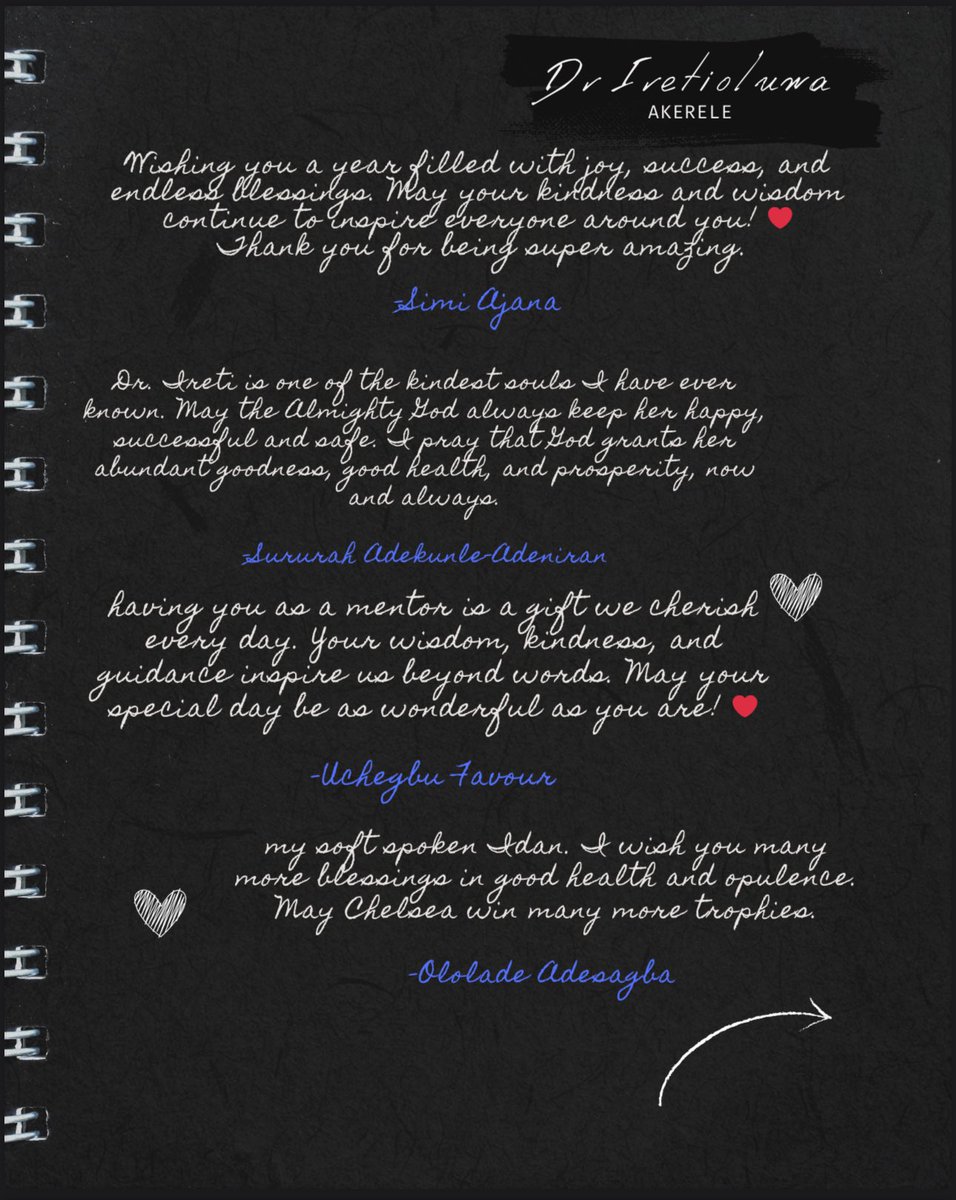 Dr Iretioluwa
AKERELE
Wishing you a year filled with joy, success, and
endless blessings. May your kindness and wisdom
continue to inspire everyone around you! ❤️
Thank you for being super amazing.
-Simi Ajana
Dr. Ireti is one of the kindest souls I have ever
known. May the Almighty God always keep her happy,
successful and safe. I pray that God grants her
abundant goodness, good health, and prosperity, now
and always.
-Sururah Adekunle-Adeniran
having you as a mentor is a gift we cherish
every day. Your wisdom, kindness, and
guidance inspire us beyond words. May your
special day be as wonderful as you are! ❤️
-Uchegbu Favour
my soft spoken Idan. I wish you many
more blessings in good health and opulence.
May Chelsea win many more trophies.
-Ololade Adesagba